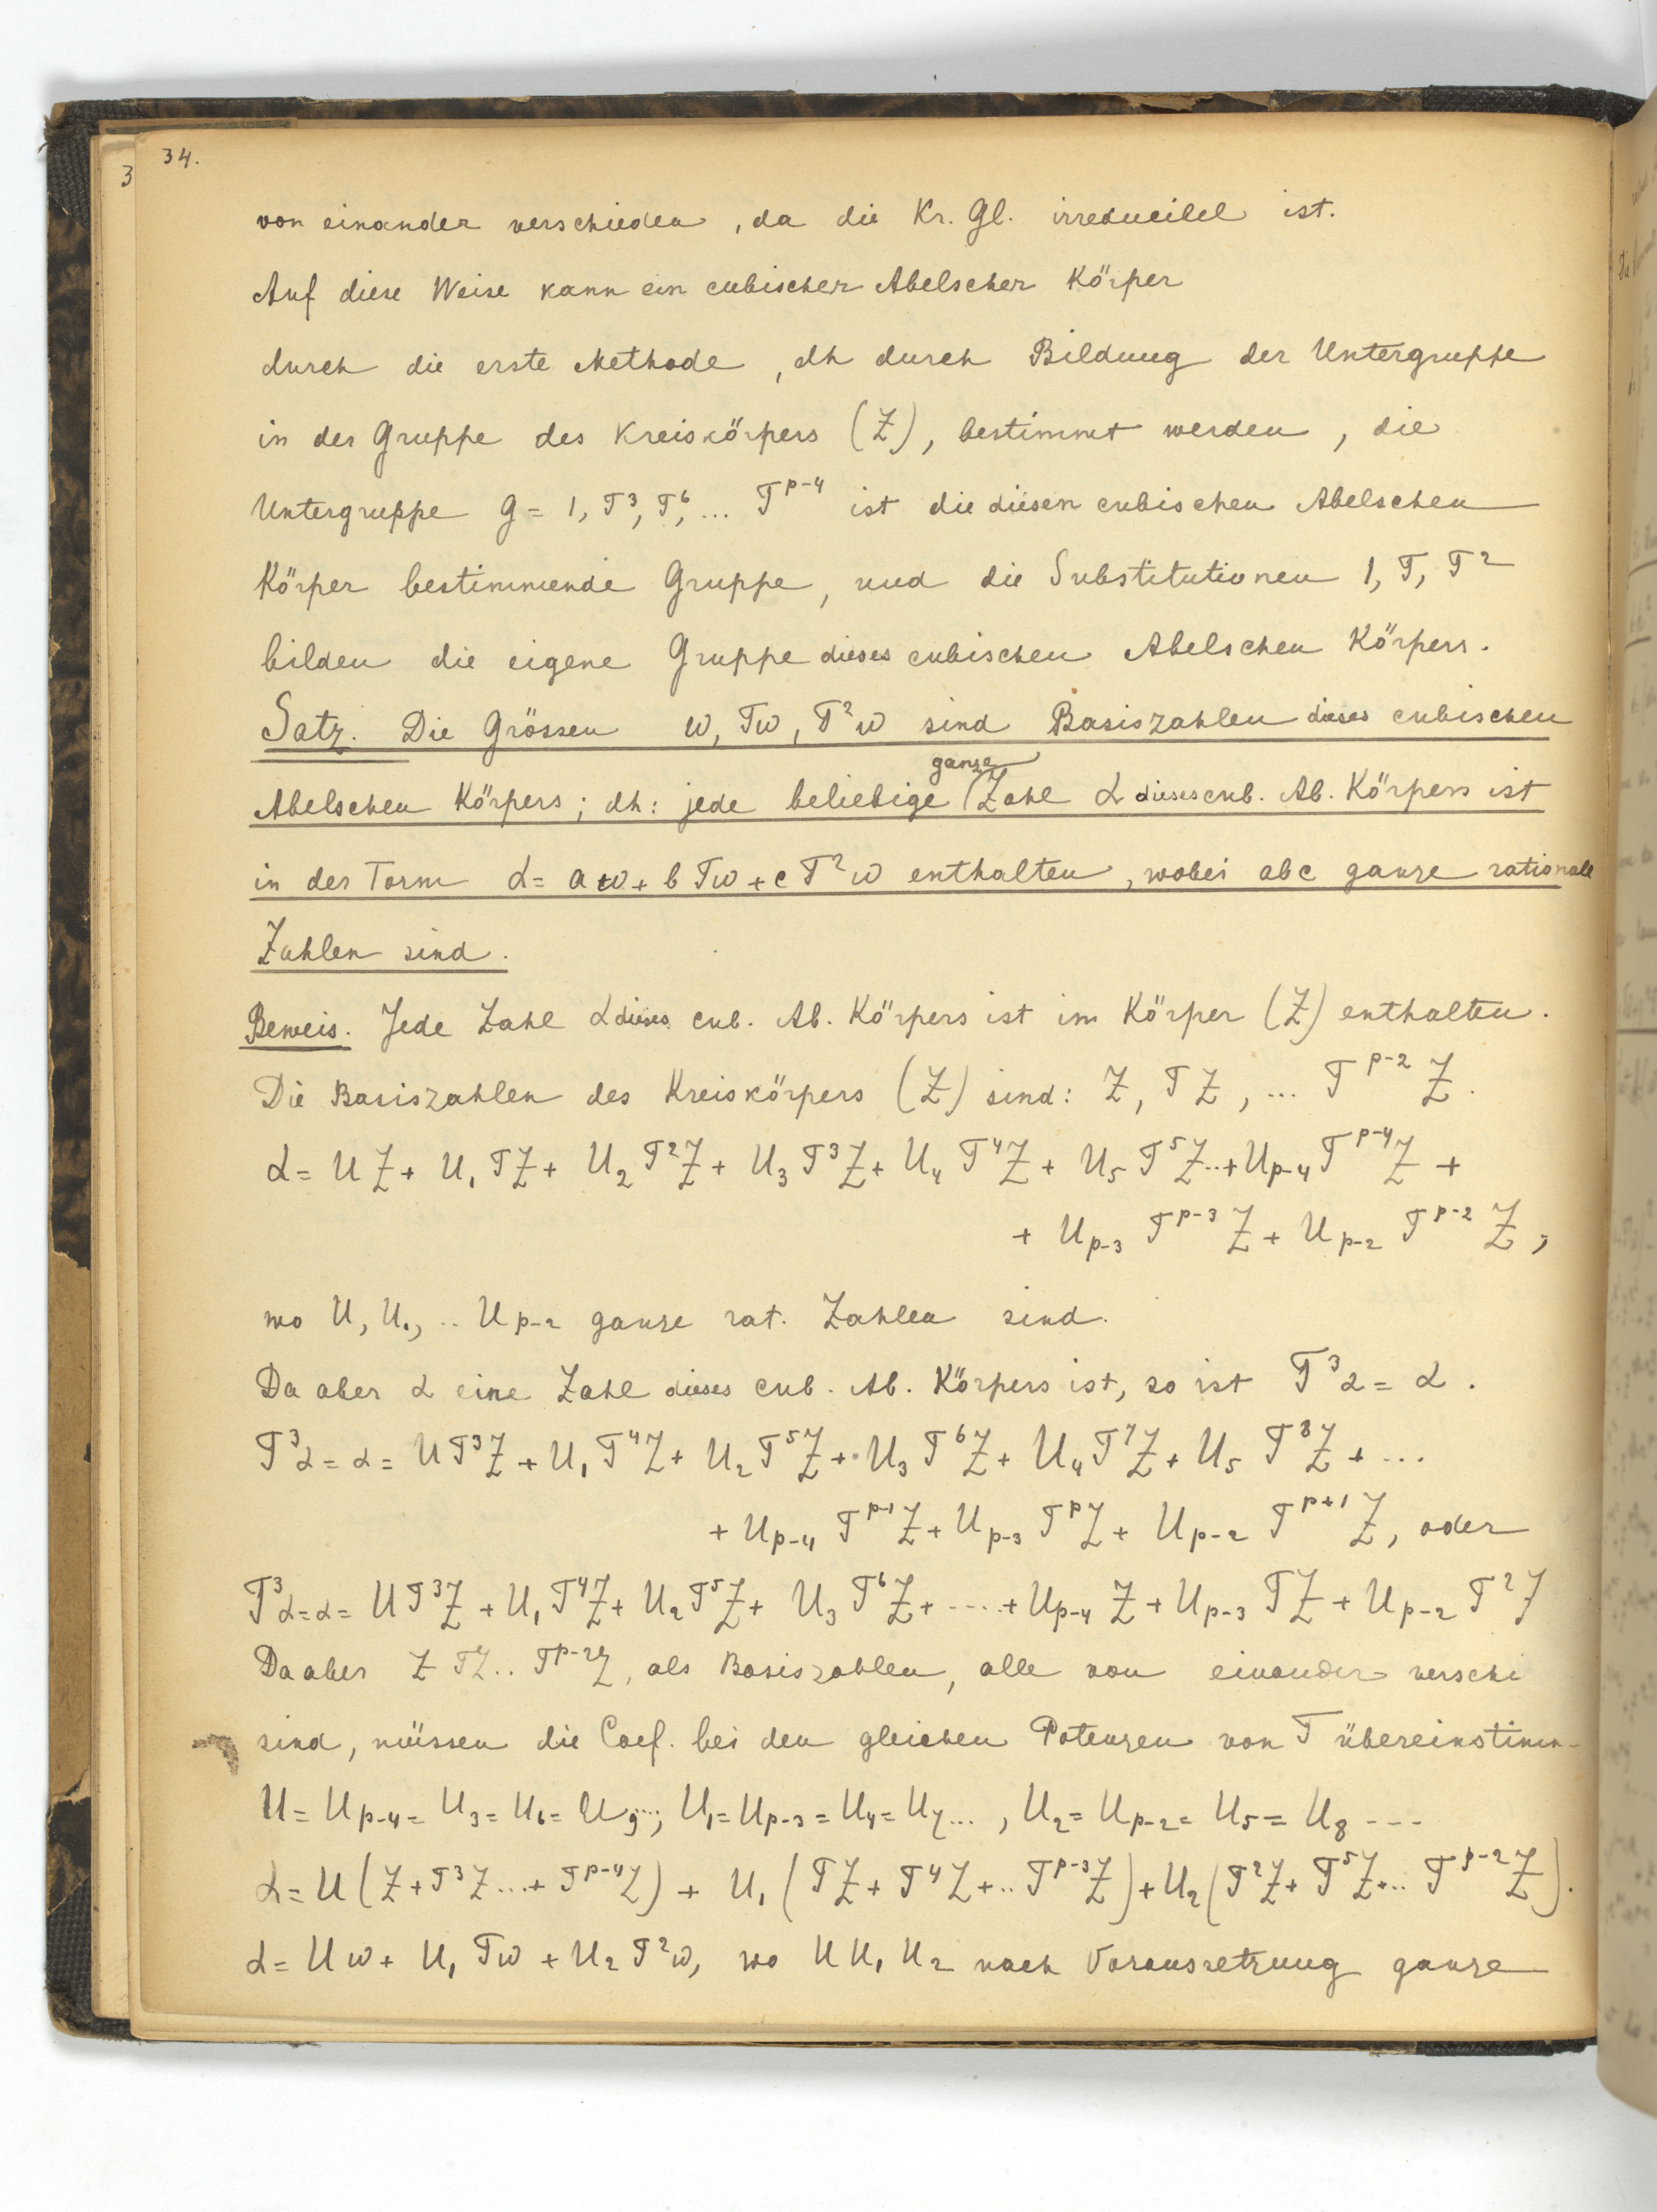 34.
3
von einander verschieden, da die Kr. Gl. irreducibel ist.
Auf diese Weise kann ein cubischer Abelscher Körper
durch die erste Methode, dh durch Bildung der Untergruppe
in der Gruppe des Kreiskörpers (Z), bestimmt werden, die
Untergruppe G = 1, T³, T⁶, ... T^{p-4} ist die diesen cubischen Abelschen
Körper bestimmende Gruppe, und die Substitutionen 1, T, T²
bilden die eigene Gruppe dieses cubischen Abelschen Körpers.
Satz. Die Grössen ω, Tω, T²ω sind Basiszahlen dieses cubischen
Abelschen Körpers; dh: jede beliebige ganze Zahl α dieses cub. Ab. Körpers ist
in der Form α = aω + b Tω + c T²ω enthalten, wobei abc ganze rationale
Zahlen sind.
Beweis. Jede Zahl α dieses cub. Ab. Körpers ist im Körper (Z) enthalten.
Die Basiszahlen des Kreiskörpers (Z) sind: Z, TZ, ... T^{p-2} Z.
α = UZ + U₁ TZ + U₂ T²Z + U₃ T³Z + U₄ T⁴Z + U₅ T⁵Z .. + U_{p-4} T^{p-4}Z +
+ U_{p-3} T^{p-3} Z + U_{p-2} T^{p-2} Z,
wo U, U₁, .. U_{p-2} ganze rat. Zahlen sind.
Da aber α eine Zahl dieses cub. Ab. Körpers ist, so ist T³α = α.
T³α = α = UT³Z + U₁ T⁴Z + U₂ T⁵Z + U₃ T⁶Z + U₄ T⁷Z + U₅ T⁸Z + ...
+ U_{p-4} T^{p-1}Z + U_{p-3} T^pZ + U_{p-2} T^{p+1}Z, oder
T³α = α = UT³Z + U₁ T⁴Z + U₂ T⁵Z + U₃ T⁶Z + ..... + U_{p-4} Z + U_{p-3} TZ + U_{p-2} T²Z
Da aber Z TZ .. T^{p-2}Z, als Basiszahlen, alle von einander verschi
sind, müssen die Coef. bei den gleichen Potenzen von T übereinstimm-
U = U_{p-4} = U₃ = U₆ = U₉ ...; U₁ = U_{p-3} = U₄ = U₇ ..., U₂ = U_{p-2} = U₅ = U₈ ---
α = U (Z + T³Z ... + T^{p-4}Z) + U₁ (TZ + T⁴Z + .. T^{p-3}Z) + U₂ (T²Z + T⁵Z + .. T^{p-2}Z).
α = Uω + U₁ Tω + U₂ T²ω, wo U U₁ U₂ nach Voraussetzung ganze